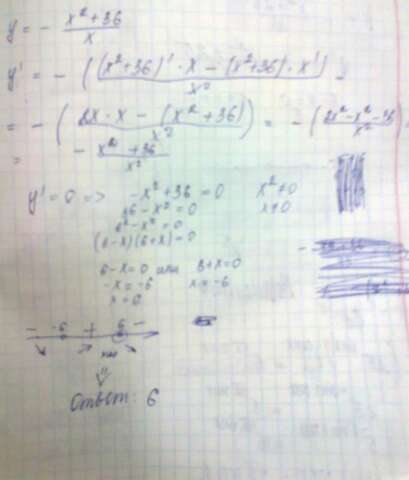 y = - (x²+36)/x
y' = - ((x²+36)' · x - (x²+36) · x')/x² =
= - (2x · x - (x² + 36))/x² = - (2x² - x² - 36)/x² =
= - x² + 36 / x²
y' = 0 => -x² + 36 = 0 x² ≠ 0
36 - x² = 0 x ≠ 0
6² - x² = 0
(6 - x)(6 + x) = 0
6 - x = 0 или 6 + x = 0
-x = -6 x = -6
x = 6
- -6 + 6 -
Ответ: 6